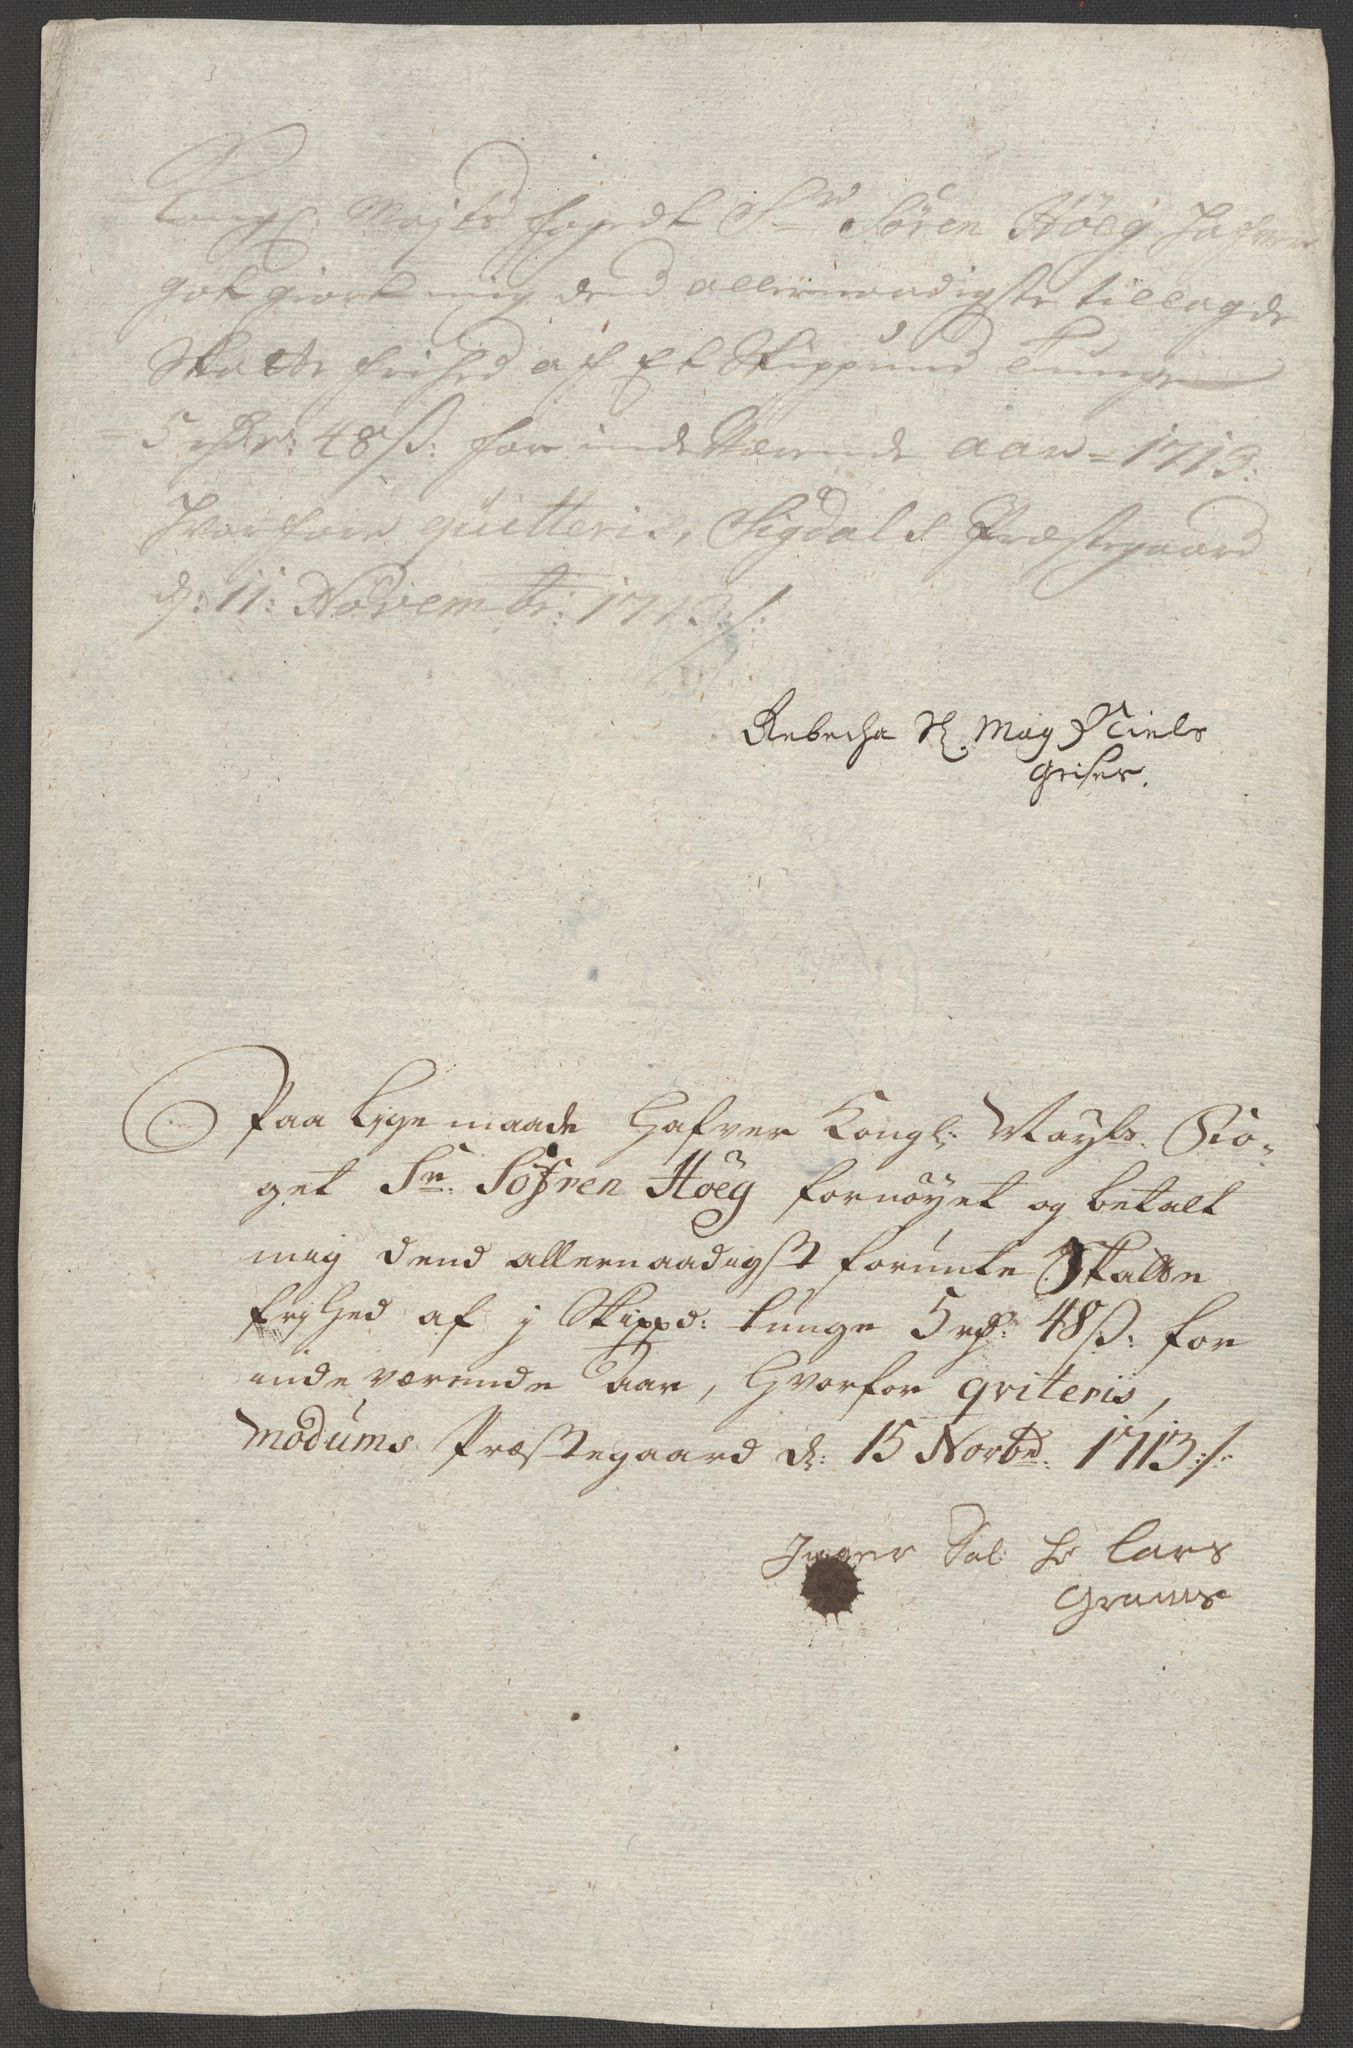 Kongl Mayts fogedt Sr Sören Höeg Hafver
got giort mig dend allernaadigste tillagde
Skatte frihed af Et Skippund tunge
= 5 rdr: 48 ß: for inde Værende aar = 1713:
Hvorfore quitteris, Sigdals Præstegaard
d: 11: Novembr: 1713 ./.
Rebecha Sl. Mag Niels
Griser.
Paa lige maade Hafver Kongl: Mayts. Fo-
get Sr. Söfren Höeg fornöyet og betalt
mig dend allernaadigst forunte Skatte
fryhed af j Skippd: tunge 5 rd: 48 ß: for
inde værende Aar, Hvorfor qviteris,
Modums Præstegaard d: 15 Novbr. 1713 ./.
Inger Sal Hr Lars
Grams